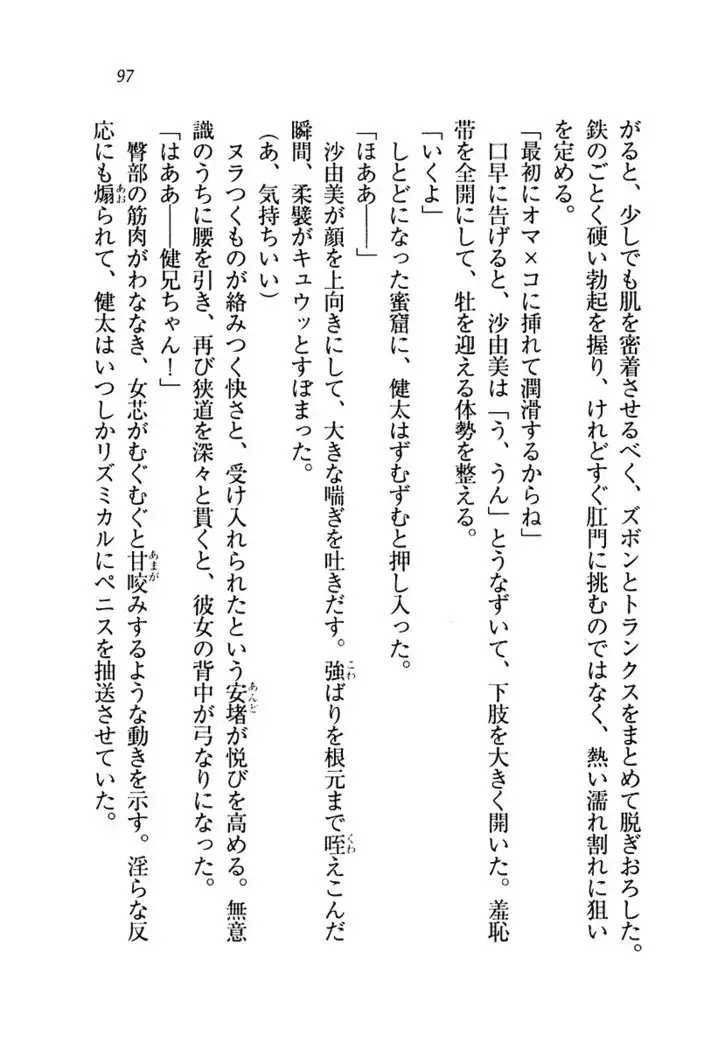 97
がると、少しでも肌を密着させるべく、ズボンとトランクスをまとめて脱ぎおろした。
鉄のごとく硬い勃起を握り、けれどすぐ肛門に挑むのではなく、熱い濡れ割れに狙い
を定める。
「最初にオマ×コに挿れて潤滑するからね」
口早に告げると、沙由美は「う、うん」とうなずいて、下肢を大きく開いた。羞恥
帯を全開にして、牡を迎える体勢を整える。
「いくよ」
しとどになった蜜窟に、健太はずむずむと押し入った。
「ほああ――」
沙由美が顔を上向きにして、大きな喘ぎを吐きだす。強ばりを根元まで咥えこんだ
瞬間、柔襞がキュウッとすぼまった。
(あ、気持ちいい)
ヌラつくものが絡みつく快さと、受け入れられたという安堵が悦びを高める。無意
識のうちに腰を引き、再び狭道を深々と貫くと、彼女の背中が弓なりになった。
「はああ――健兄ちゃん!」
臀部の筋肉がわななき、女芯がむぐむぐと甘咬みするような動きを示す。淫らな反
応にも煽られて、健太はいつしかリズミカルにペニスを抽送させていた。